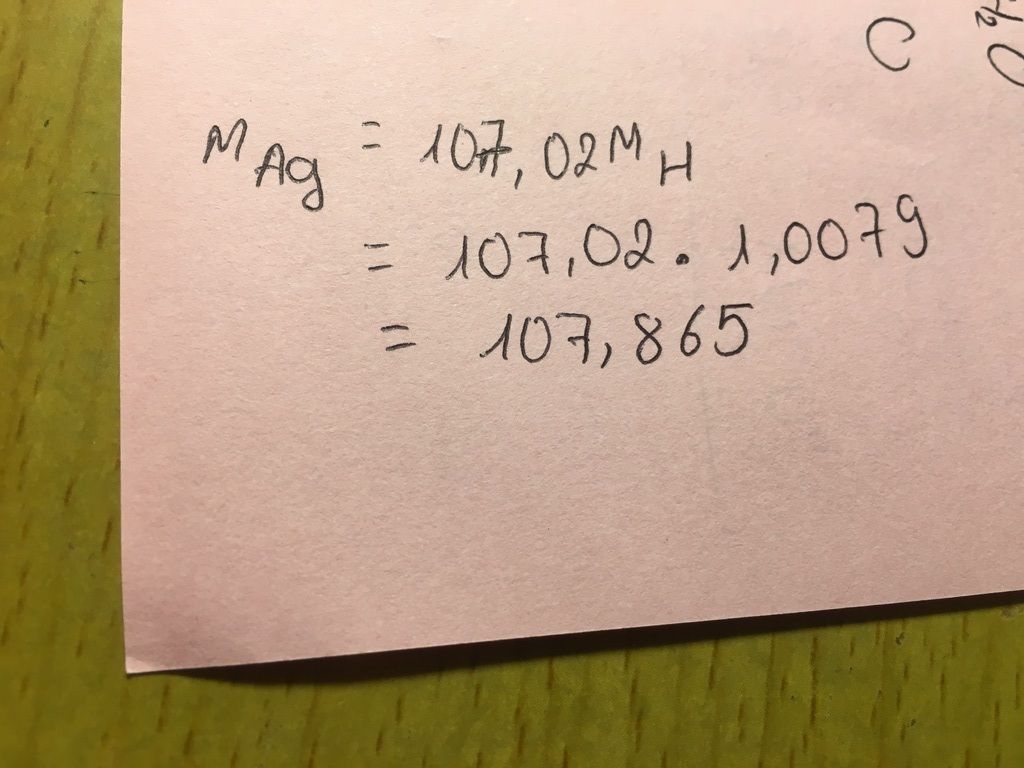 M Ag = 107,02 M H
= 107,02 . 1,0079
= 107,865
C